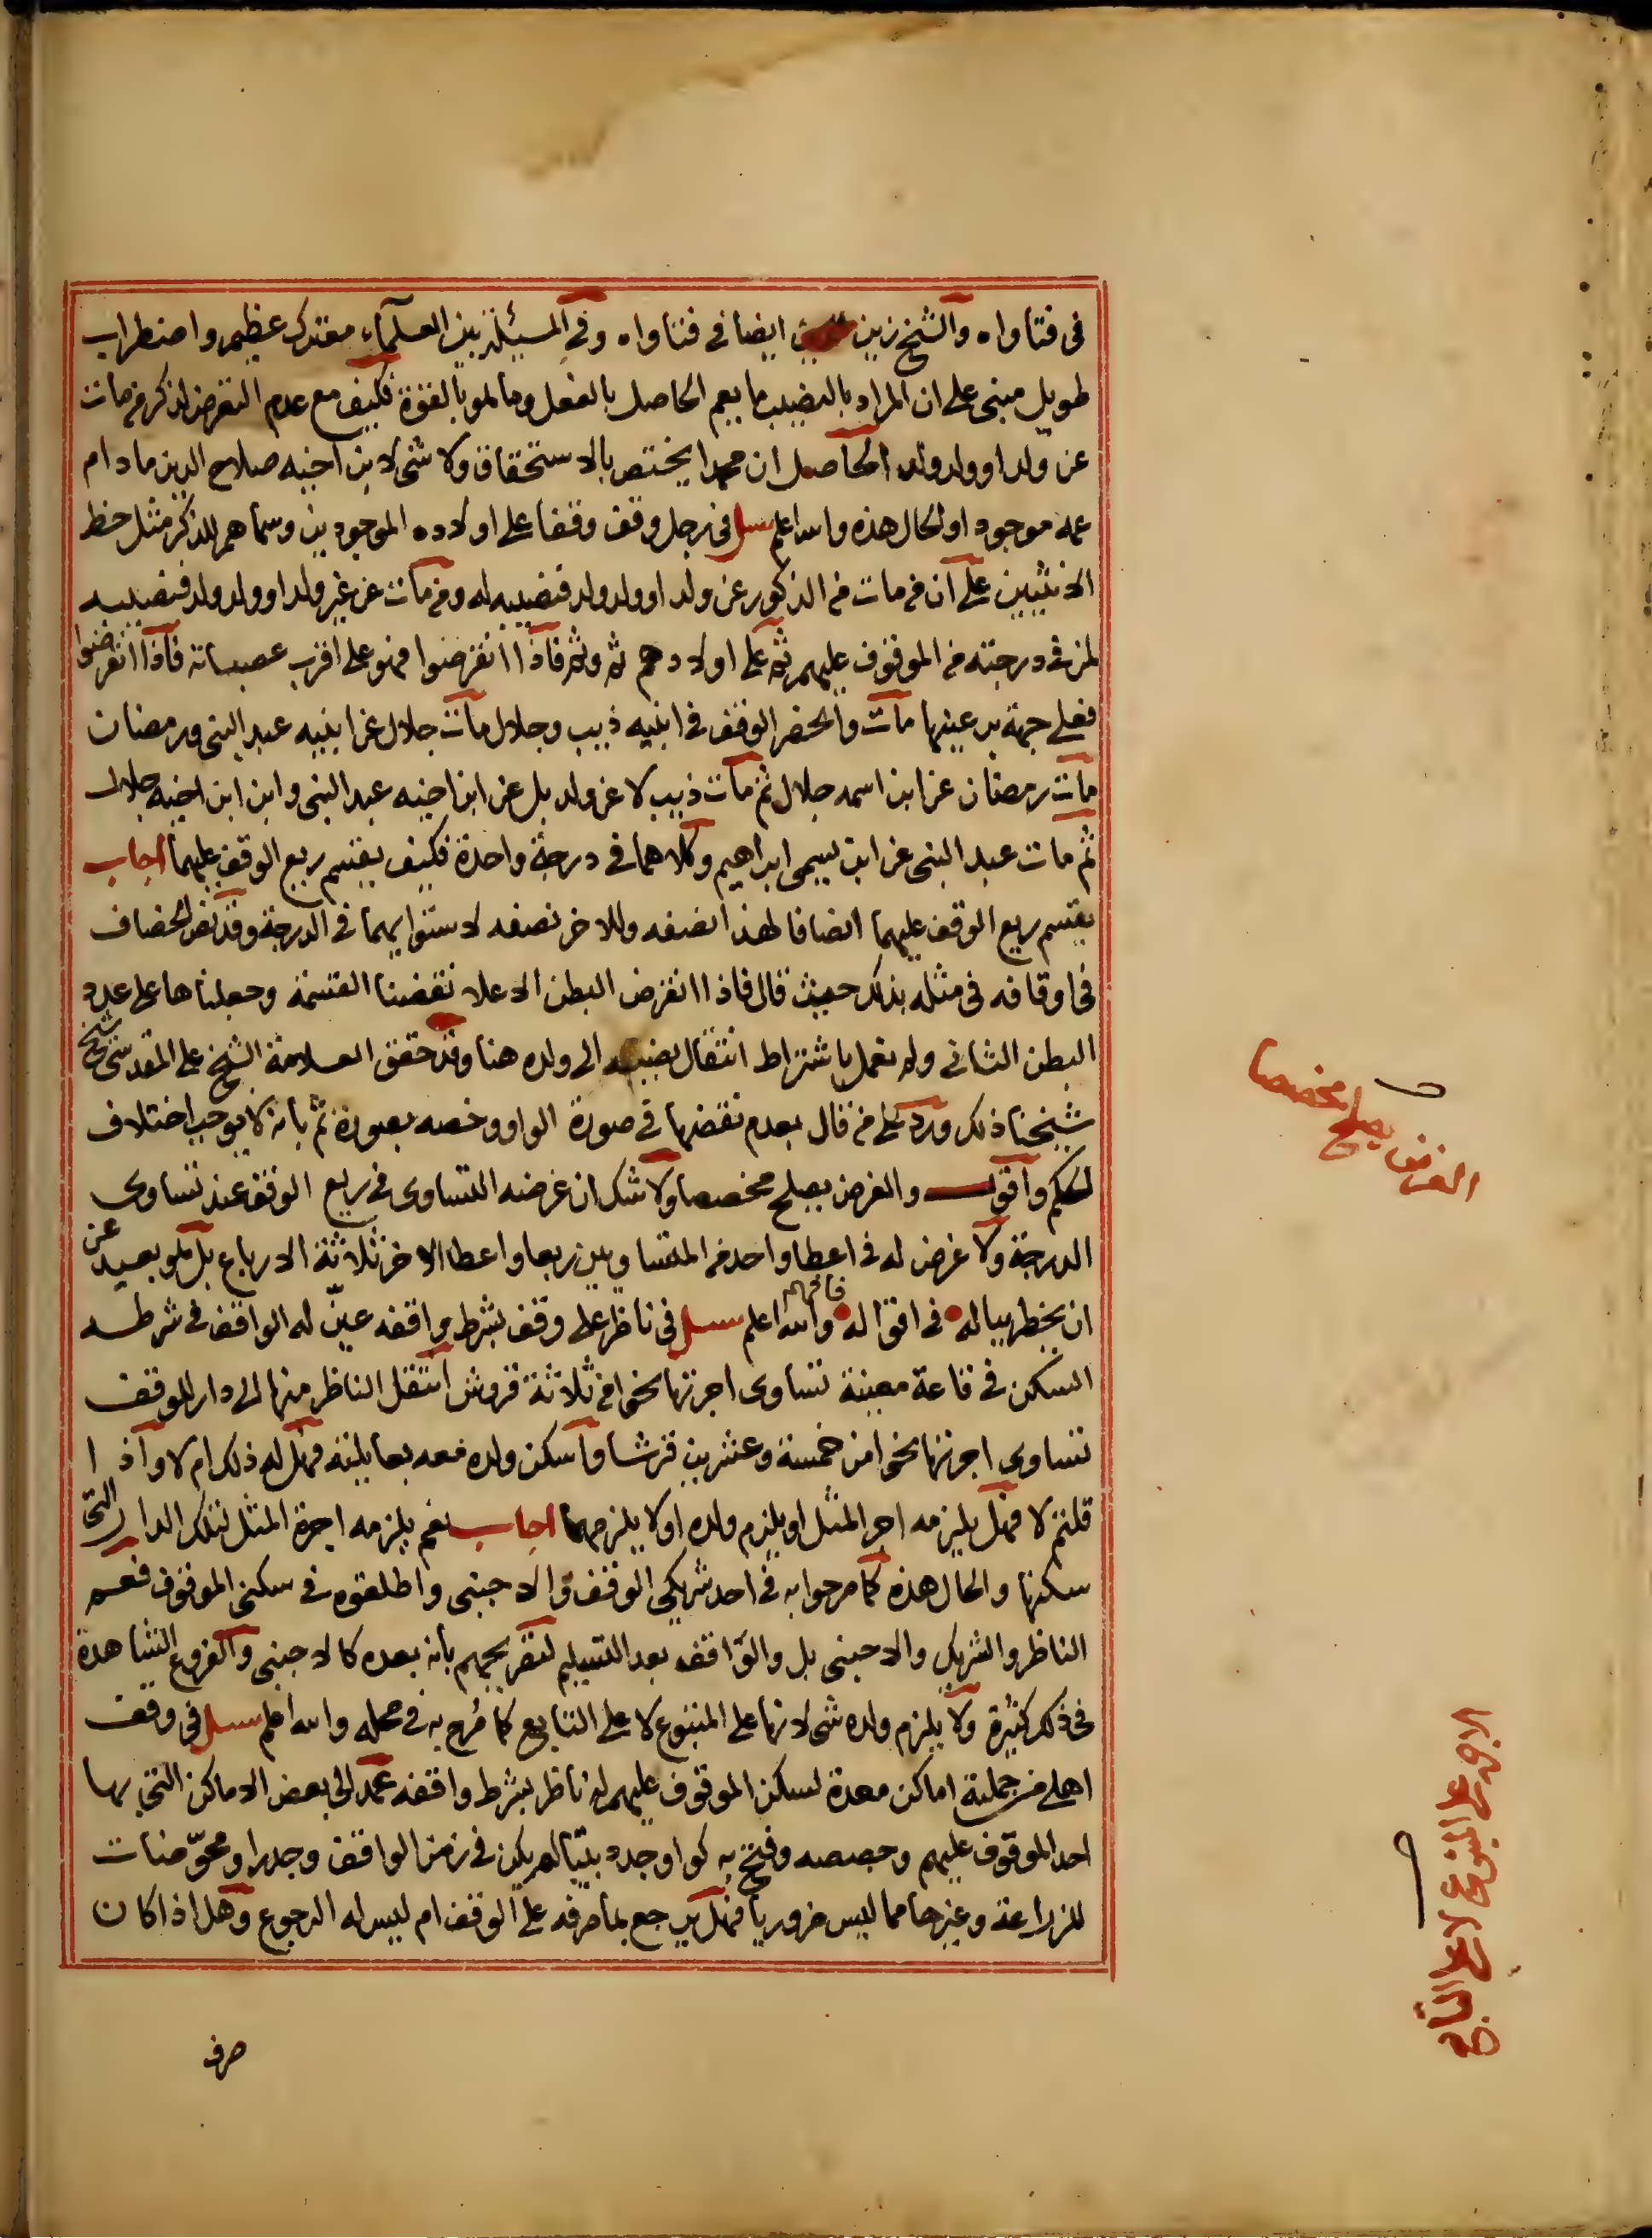 في فتاواه والشيخ زين ايضا في فتاواه وفي المسئلة بين العلماء معترك عظيم واضطراب
طويل مبنى على ان المراد بالنصيب ما يعم الحاصل بالفعل وما هو بالقوة فكيف مع عدم التعرض لذكر من مات
عن ولد او ولد ولد الحاصل ان محمدا يختص بالاستحقاق ولا شى لابن اخيه صلاح الدين ما دام
عمه موجودا والحال هذه والله اعلم سئل في رجل وقف وقفا على اولاده الموجودين وسماهم للذكر مثل حظ
الانثيين على ان من مات من الذكور عن ولد او ولد ولد فنصيبه له ومن مات عن غير ولد او ولد ولد فنصيبه
لمن في درجته من الموقوف عليهم ثم على اولادهم ثم وثم فاذا انقرضوا فهو على اقرب عصباته فاذا انقرضوا
فعلى جهة بر عينها مات وانحصر الوقف في ابنيه ذييب وجلال مات جلال عن ابنيه عبد النبي ورمضان
مات رمضان عن ابن اسمه جلال ثم مات ذييب لا عن ولد بل عن ابن اخيه عبد النبي وابن ابن اخيه جلال
ثم مات عبد النبي عن ابن يسمى ابراهيم وكلاهما في درجة واحدة فكيف يقسم ريع الوقف عليهما اجاب
يقسم ريع الوقف عليهما انصافا لهذا نصفه وللاخر نصفه لاستوايهما في الدرجة وقد نص الخصاف
في اوقافه في مثله بذلك حيث قال فاذا انقرض البطن الاعلا نقضنا القسمة وجعلناها على عدد
البطن الثاني ولم نعمل باشتراط انتقال نصيبه الى ولده هنا وقد حقق العلامة الشيخ على المقدسي شيخ
شيخنا ذلك ورد على من قال بعدم نقضها في صورة الواو وخصه بصورة ثم بانه لا يوجب اختلاف
الحكم واقول والغرض يصلح مخصصا ولا شك ان غرضه التساوى في ريع الوقف عند تساوى
الدرجة ولا غرض له في اعطا واحد من المتساويين ربعا واعطا الاخر ثلاثة الارباع بل هو بعيد عن
ان يخطر بباله في اقواله فافهم والله اعلم سئل في ناظر على وقف بشرط واقفه عين له الواقف في شرطه
السكن في قاعة معينة تساوى اجرتها نحوا من ثلاثة قروش انتقل الناظر منها الى دار للوقف
تساوى اجرتها نحوا من خمسة وعشرين قرشا واسكن ولده معه بعايلته فهل له ذلك ام لا واذا
قلتم لا فهل يلزمه اجر المثل او يلزم ولده او لا يلزمهما اجاب نعم يلزمه اجرة المثل لتلك الدار التي
سكنها والحال هذه كما صرحوا به في احد شريكي الوقف والاجنبي واطلقوه في سكنى الموقوف فعم
الناظر والشريك والاجنبي بل والواقف بعد التسليم لتصريحهم بانه بعده كالاجنبي والفروع الشاهدة
في ذلك كثيرة ولا يلزم ولده شى لانها على المتبوع لا على التابع كما صرح به في محله والله اعلم سئل في وقف
اهلي من جملته اماكن معدة لسكن الموقوف عليهم له ناظر بشرط واقفه عمد الى بعض الاماكن التي بها
احد الموقوف عليهم وجصصه وفتح به كوا وجدد بيتا لم يكن في زمن الواقف وجدرا ومحوضات
للزراعة وغيرها مما ليس ضروريا فهل يرجع بما صرفه على الوقف ام ليس له الرجوع وهل اذا كان
صرف
الغرض يصلح مخصصا
الاجرة على المتبوع لا على التابع